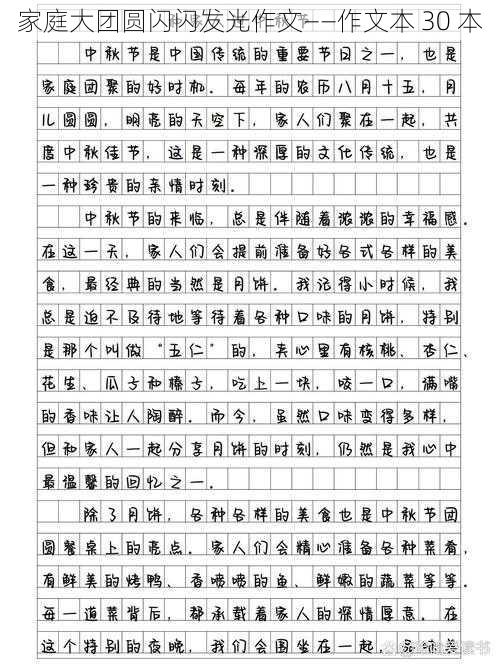 家庭大团圆闪闪发光作文——作文本 30 本
中秋节是中国传统的重要节日之一，也是
家庭团聚的好时机。每年的农历八月十五，月
儿圆圆，明亮的天空下，家人们聚在一起，共
度中秋佳节，这是一种深厚的文化传统，也是
一种珍贵的亲情时刻。
中秋节的来临，总是伴随着浓浓的幸福感。
在这一天，家人们会提前准备好各式各样的美
食，最经典的当然是月饼。我记得小时候，我
总是迫不及待地等待着各种口味的月饼，特别
是那个叫做“五仁”的，夹心里有核桃、杏仁、
花生、瓜子和榛子，吃上一块，咬一口，满嘴
的香味让人陶醉。而今，虽然口味变得多样，
但和家人一起分享月饼的时刻，仍然是我心中
最温馨的回忆之一。
除了月饼，各种各样的美食也是中秋节团
圆餐桌上的亮点。家人们会精心准备各种菜肴，
有鲜美的烤鸭、香喷喷的鱼、鲜嫩的蔬菜等等。
每一道菜背后，都承载着家人的深情厚意。在
这个特别的夜晚，我们会围坐在一起，